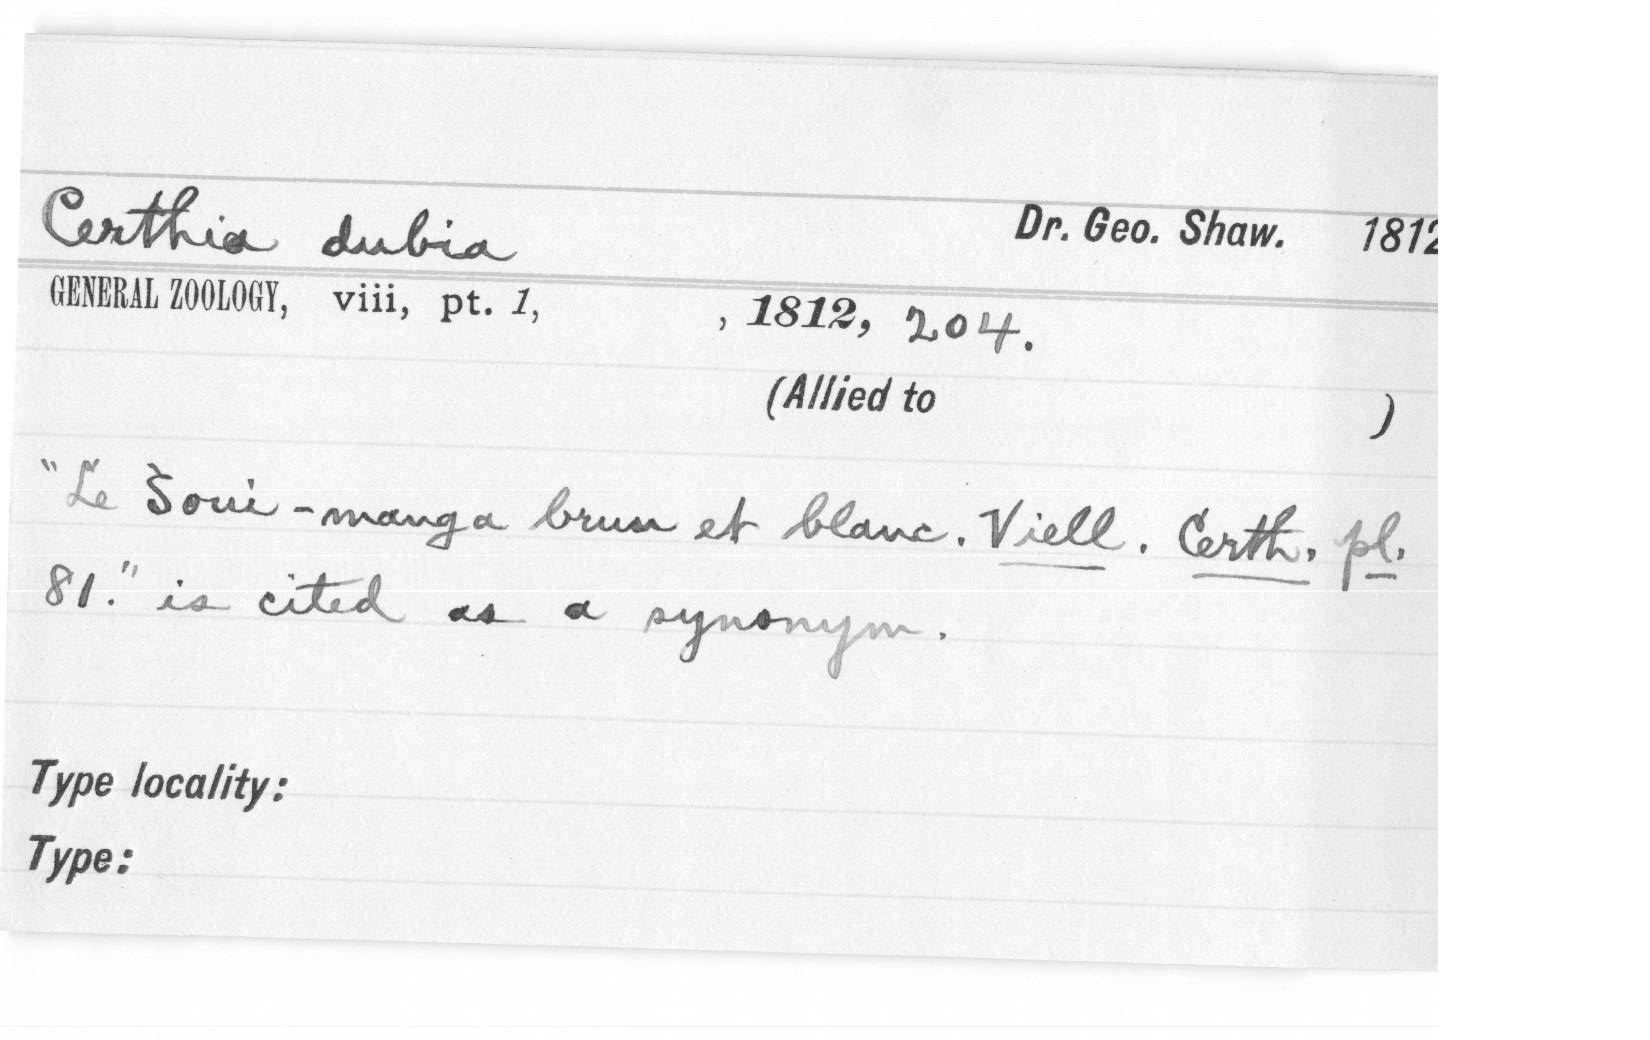 Certhia dubia Dr. Geo. Shaw. 1812
GENERAL ZOOLOGY, viii, pt. 1, , 1812, 204.
(Allied to )
"Le Soui-manga brun et blanc. Viell. Certh. pl.
81." is cited as a synonym.
Type locality:
Type: